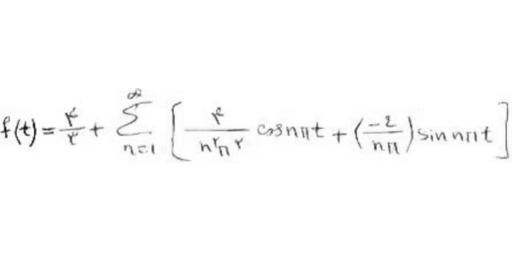 f(t) = ۴/۳ + ∑_{n=1}^{∞} [ ۴/(n^۲π^۲) cos nπt + (-٤/(nπ)) sin nπt ]